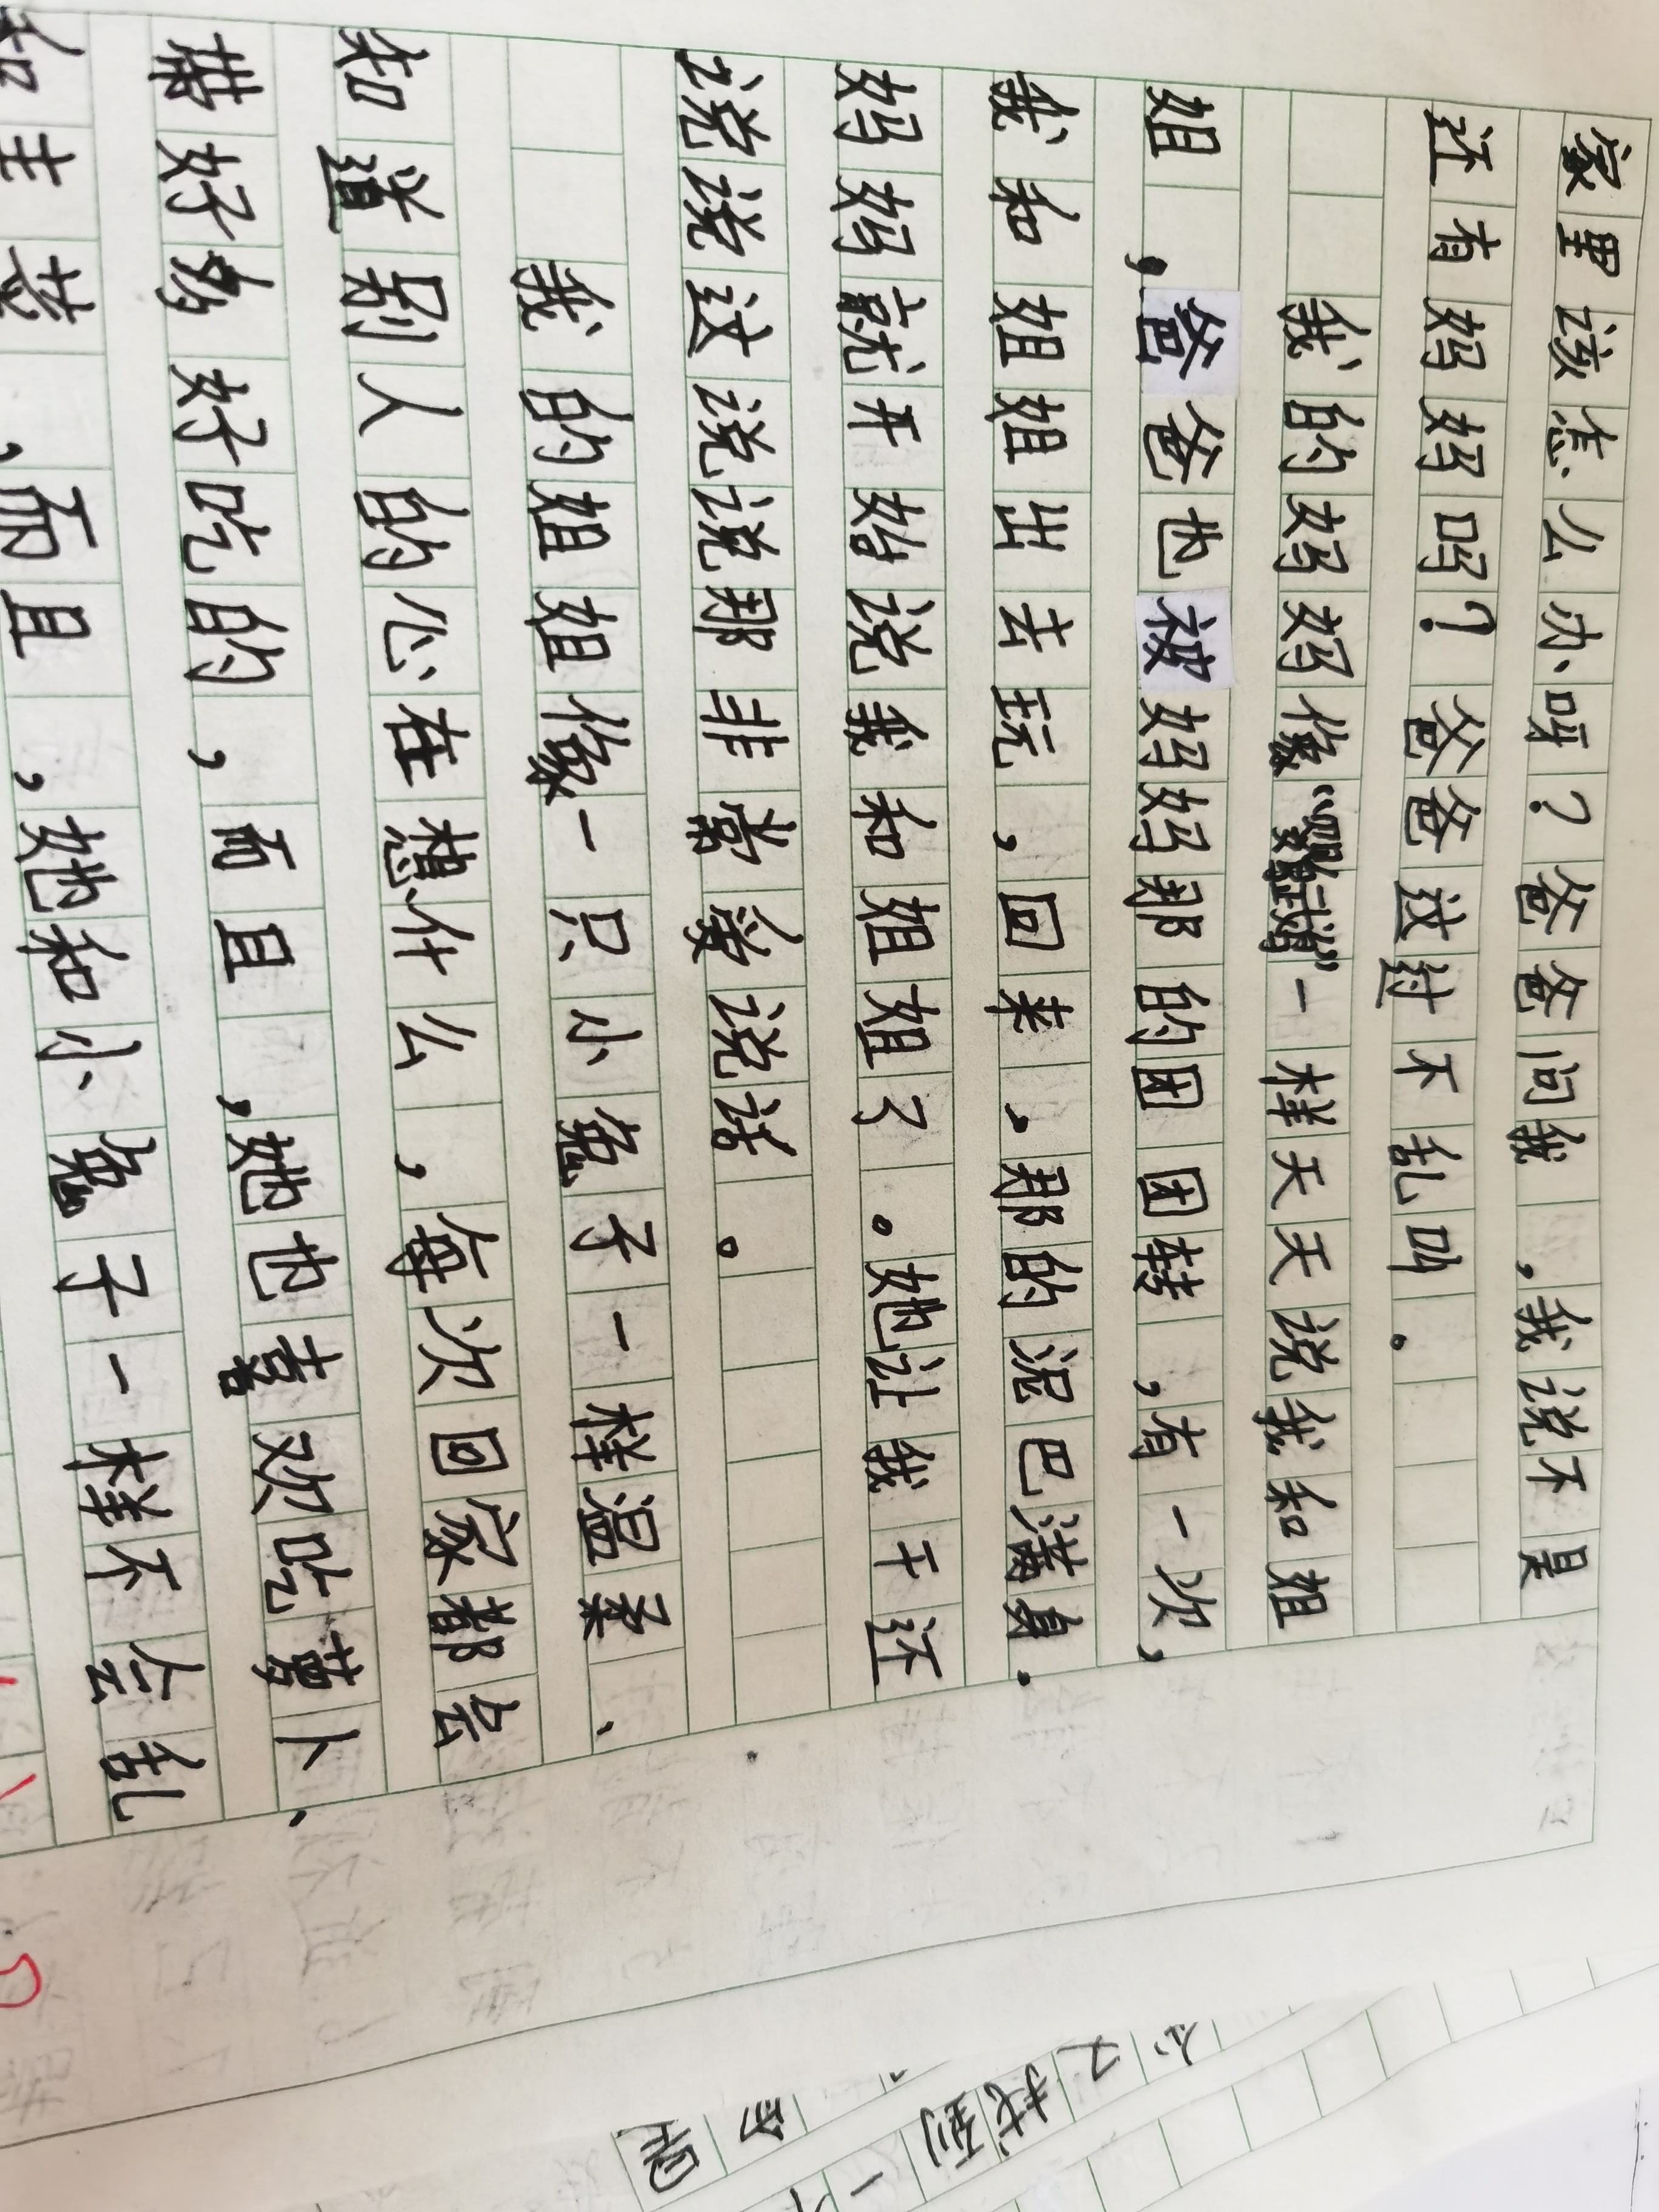 家里该怎么办呀？爸爸问我，我说不是
还有妈妈吗？爸爸这过不乱叫。
我的妈妈像“鹦鹉”一样天天说我和姐
姐，爸爸也被妈妈那的团团转，有一次，
我和姐姐出去玩，回来.那的泥巴满身.
妈妈就开始说我和姐姐了。她让我干还
说说这说说那非常爱说话。
我的姐姐像一只小兔子一样温柔、
知道别人的心在想什么，每次回家都会
带好多好吃的，而且，她也喜欢吃萝卜、
和生菜，而且，她和小兔子一样不会乱
又找到一